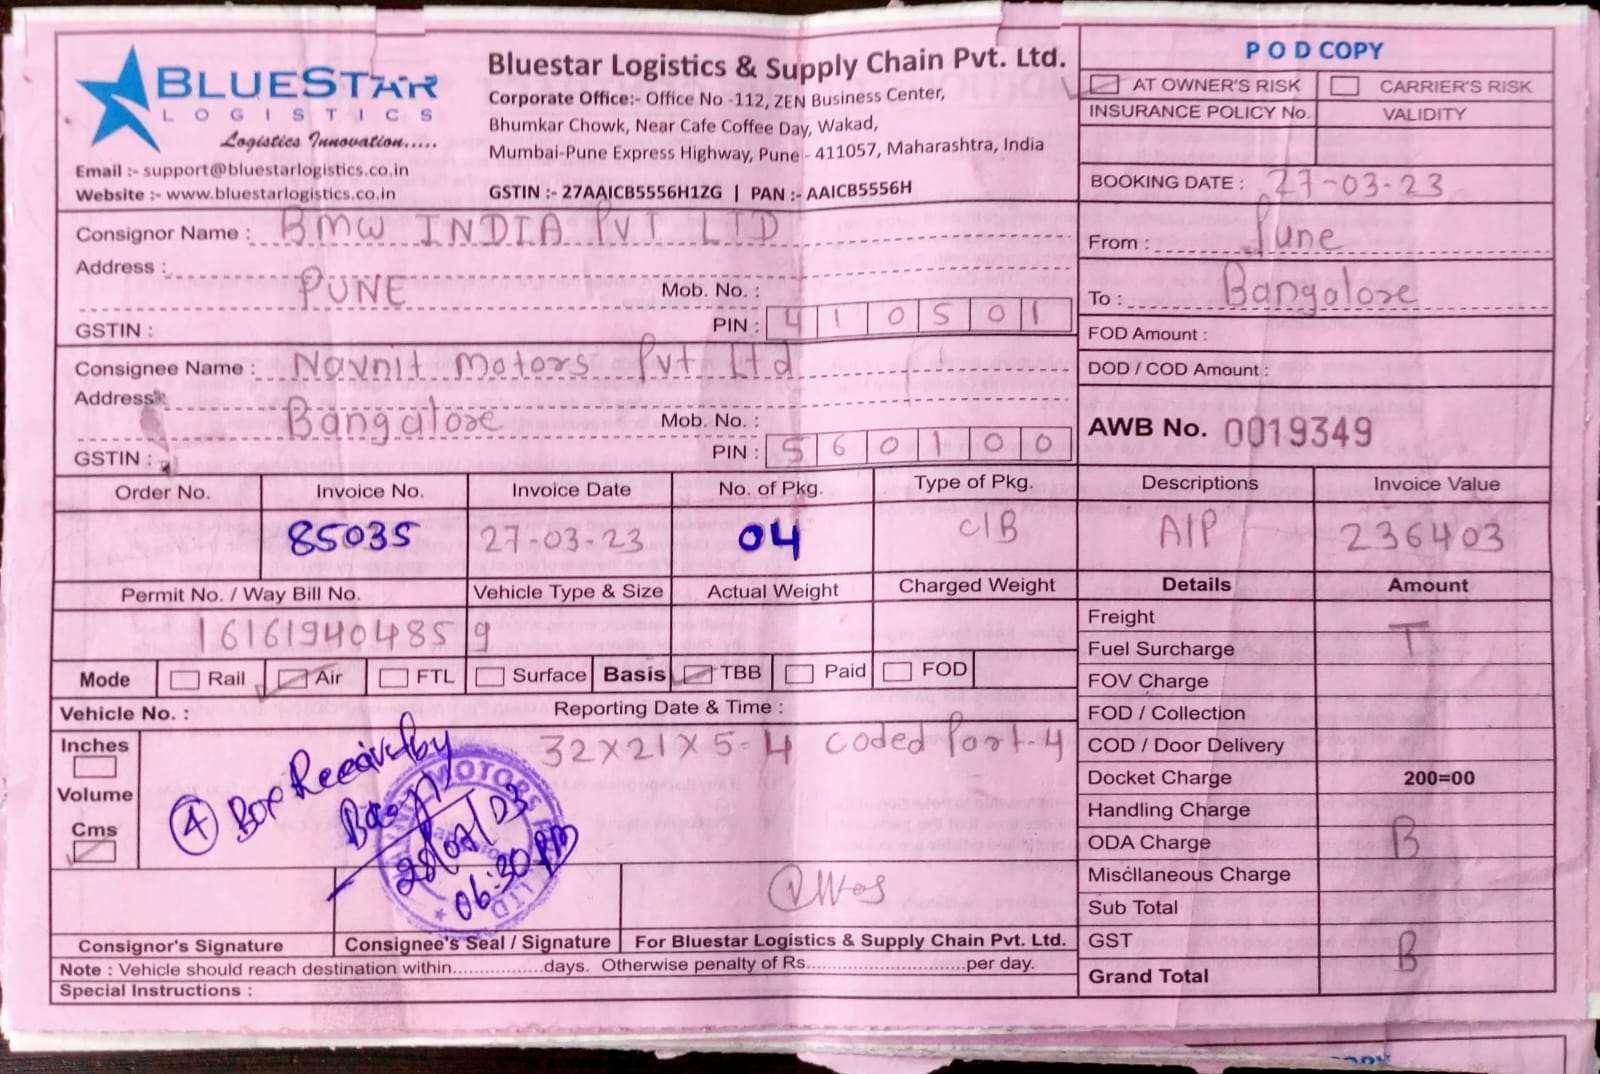 BLUESTAR
LOGISTICS
Logistics Innovation.....
Email :- support@bluestarlogistics.co.in
Website :- www.bluestarlogistics.co.in
Bluestar Logistics & Supply Chain Pvt. Ltd.
Corporate Office:- Office No -112, ZEN Business Center,
Bhumkar Chowk, Near Cafe Coffee Day, Wakad,
Mumbai-Pune Express Highway, Pune - 411057, Maharashtra, India
GSTIN :- 27AAICB5556H1ZG | PAN :- AAICB5556H
POD COPY
AT OWNER'S RISK CARRIER'S RISK
INSURANCE POLICY No. VALIDITY
BOOKING DATE : 27-03-23
From : Pune
To : Bangalose
FOD Amount :
DOD / COD Amount :
AWB No. 0019349
Consignor Name : BMW INDIA PVT LTD
Address :
PUNE Mob. No. :
GSTIN : PIN : 410501
Consignee Name : Navnit Motors Pvt Ltd
Address :
Bangalose Mob. No. :
GSTIN : PIN : 560100
Order No. Invoice No. Invoice Date No. of Pkg. Type of Pkg. Descriptions Invoice Value
85035 27-03-23 04 C/B A/P 236403
Permit No. / Way Bill No. Vehicle Type & Size Actual Weight Charged Weight
161619404859
Mode Rail Air FTL Surface Basis TBB Paid FOD
Vehicle No. : Reporting Date & Time :
Inches
Volume
Cms
32x21x5-4 coded Part-4
4 Box Received by
06:30 PM
MOTORS
LTD
Details Amount
Freight
T
Fuel Surcharge
FOV Charge
FOD / Collection
COD / Door Delivery
Docket Charge 200=00
Handling Charge
ODA Charge B
Miscllaneous Charge
Sub Total
GST B
Grand Total
Consignor's Signature Consignee's Seal / Signature For Bluestar Logistics & Supply Chain Pvt. Ltd.
Note : Vehicle should reach destination within................days. Otherwise penalty of Rs............................per day.
Special Instructions :